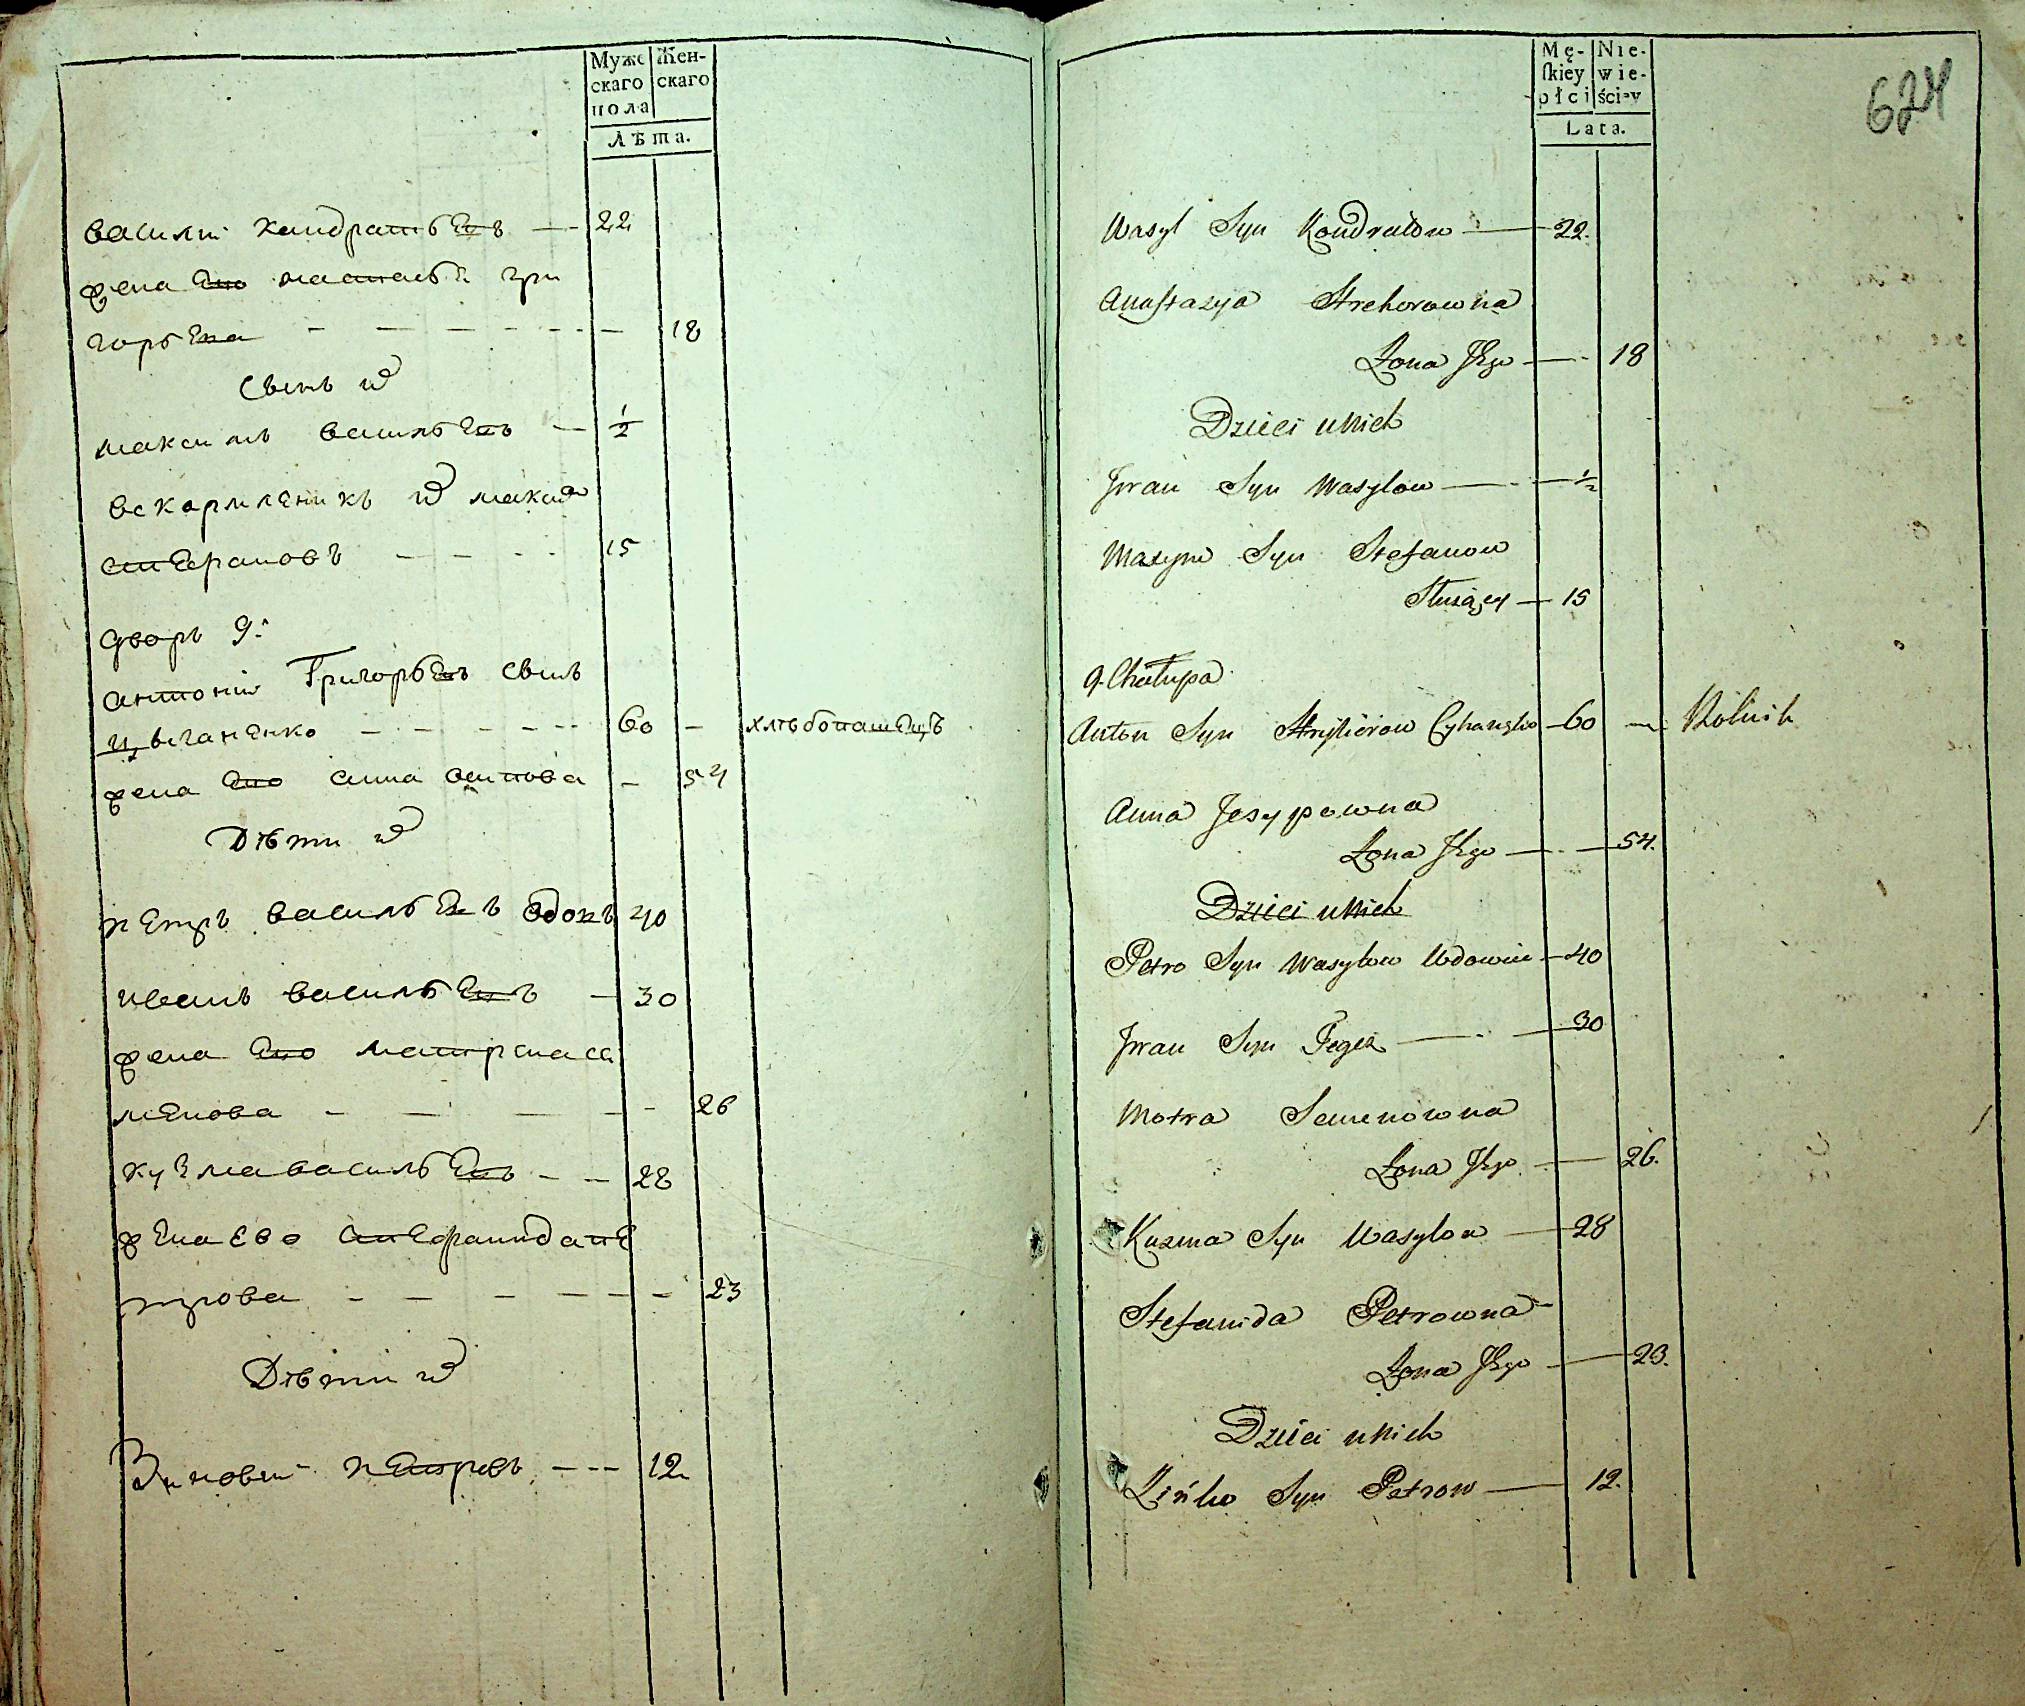 Муже
скаго
пола
Жен-
скаго
Лѣта.
василий кандратьевъ — 22
жена ево настасья гри
горьева — 18
Сынъ их
максимъ васильевъ — 1/2
вскормленикъ их макси
степановъ — 15
дворъ 9:
антоній Григорьевъ сынъ
цыганенко — 60 — хлѣбопашецъ
жена ево анна осипова — 54
Дѣти их
петръ васильевъ вдовъ 40
иванъ васильевъ — 30
жена ево матрона се
менова — 26
кузма васильевъ — 28
жена ево степанида пе
трова — 23
Дѣти их
Зиновий петровъ — 12
Mę-
ſkiey
płci
Nie-
wie-
ściey
Lata.
624
Wasyl Syn Kondratow — 22.
Anastazya Hrehorowna
Żona Jego — 18
Dzieci u Nich
Jwan Syn Wasylow — 1/2
Maxym Syn Stefanow
Służący — 15
9. Chałupa
Anton Syn Hryhorow Cyhanenko — 60 — Rolnik
Anna Josypowna
Żona Jego — 54.
Dzieci u Nich
Petro Syn Wasylow Wdowiec — 40
Jwan Syn Tegoż — 30
Motra Semenowna
Żona Jego — 26.
Kuzma Syn Wasylow — 28
Stefanida Petrowna
Żona Jego — 23.
Dzieci u Nich
Zińko Syn Petrow — 12.